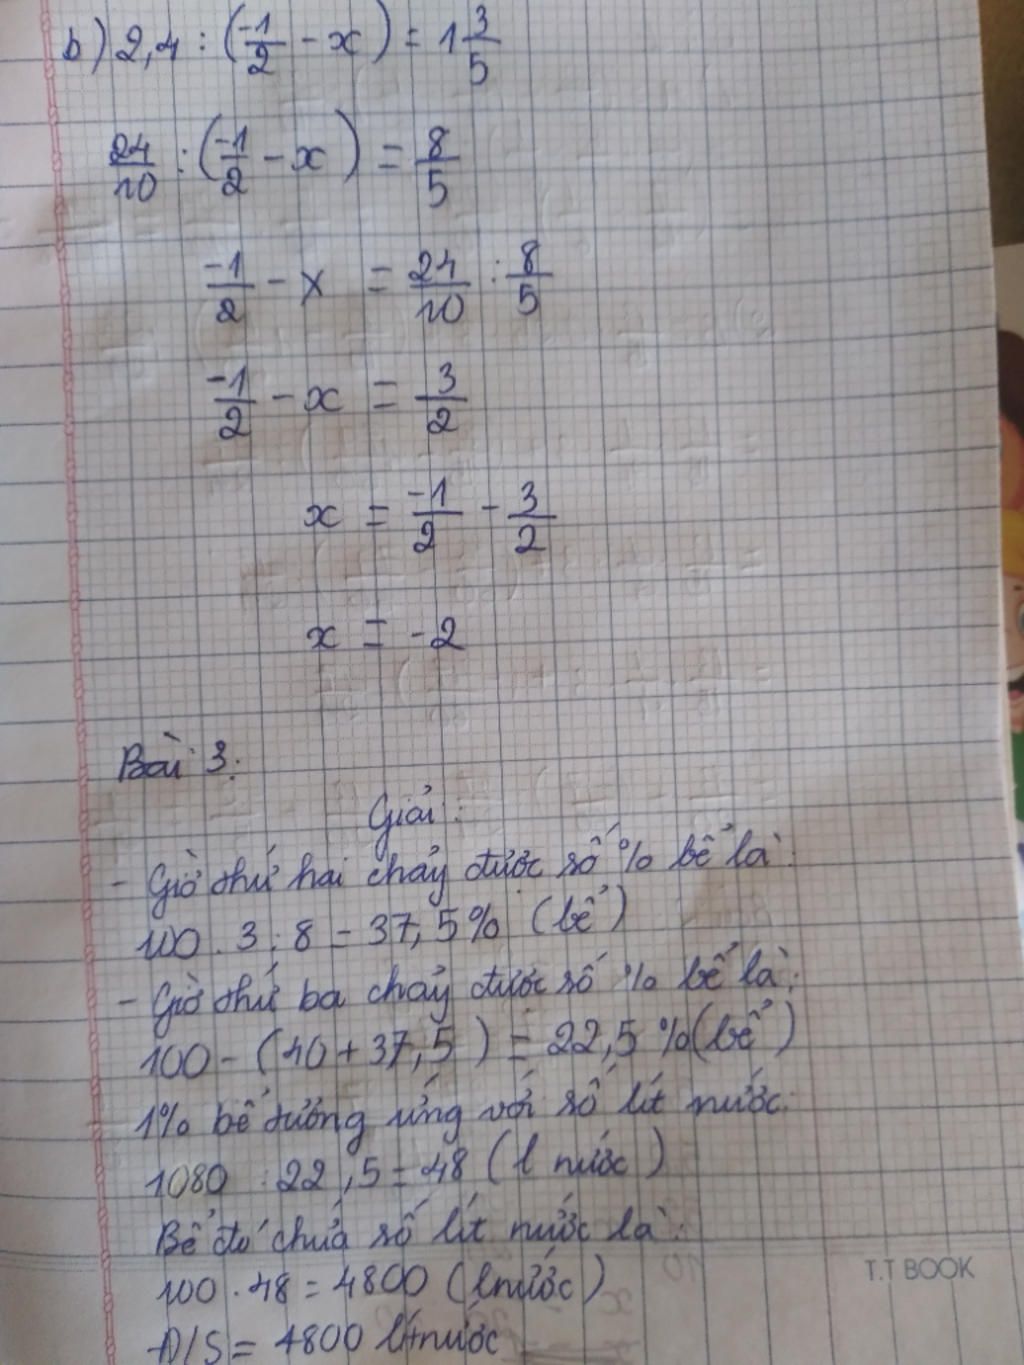 b) 2,4 : (-1/2 - x) = 1 3/5
24/10 : (-1/2 - x) = 8/5
-1/2 - x = 24/10 : 8/5
-1/2 - x = 3/2
x = -1/2 - 3/2
x = -2
Bài 3:
Giải:
- Giờ thứ hai chảy được số % bể là:
100 . 3 : 8 = 37,5% (bể)
- Giờ thứ ba chảy được số % bể là:
100 - (40 + 37,5) = 22,5 % (bể)
1% bể tương ứng với số lít nước:
1080 : 22,5 = 48 (l nước)
Bể đó chứa số lít nước là:
100 . 48 = 4800 (l nước)
Đ/S = 4800 lít nước
T.T BOOK